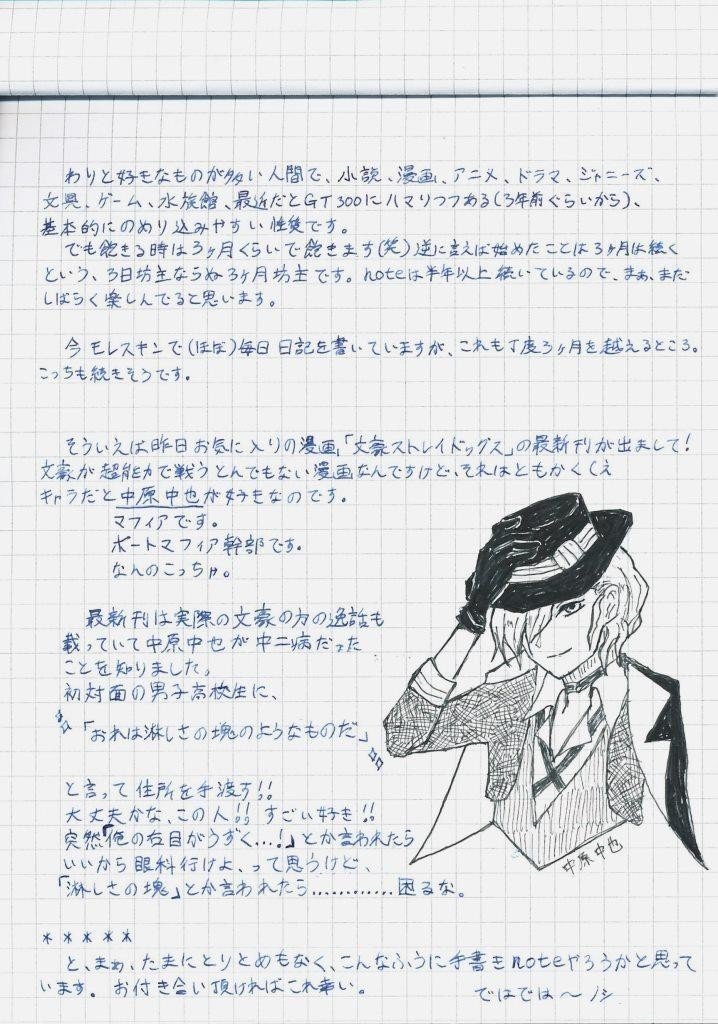 わりと好きなものが多い人間で、小説、漫画、アニメ、ドラマ、ジャニーズ、
文具、ゲーム、水族館、最近だとGT300にハマりつつある(3年前ぐらいから)、
基本的にのめり込みやすい性質です。
でも飽きる時は3ヶ月くらいで飽きます(笑)逆に言えば始めたことは3ヶ月は続く
という、3日坊主ならぬ3ヶ月坊主です。noteは半年以上続いているので、まぁ、まだ
しばらく楽しんでると思います。
今モレスキンで(ほぼ)毎日日記を書いていますが、これも丁度3ヶ月を越えるところ。
こっちも続きそうです。
そういえば昨日お気に入りの漫画「文豪ストレイドッグス」の最新刊が出まして!
文豪が超能力で戦うとんでもない漫画なんですけど、それはともかく
キャラだと中原中也が好きなのです。
マフィアです。
ポートマフィア幹部です。
なんのこっちゃ。
最新刊は実際の文豪の方の逸話も
載っていて中原中也が中二病だった
ことを知りました。
初対面の男子高校生に、
「おれは淋しさの塊のようなものだ」
と言って住所を手渡す!!
大丈夫かな、この人!!すごい好き!!
突然「俺の右目がうずく…!」とか言われたら
いいから眼科行けよ、って思うけど、
「淋しさの塊」とか言われたら…………困るな。
中原中也
*****
と、まぁ、たまにとりとめもなく、こんなふうに手書きnoteやろうかと思って
います。お付き合い頂ければこれ幸い。
ではでは〜ノシ